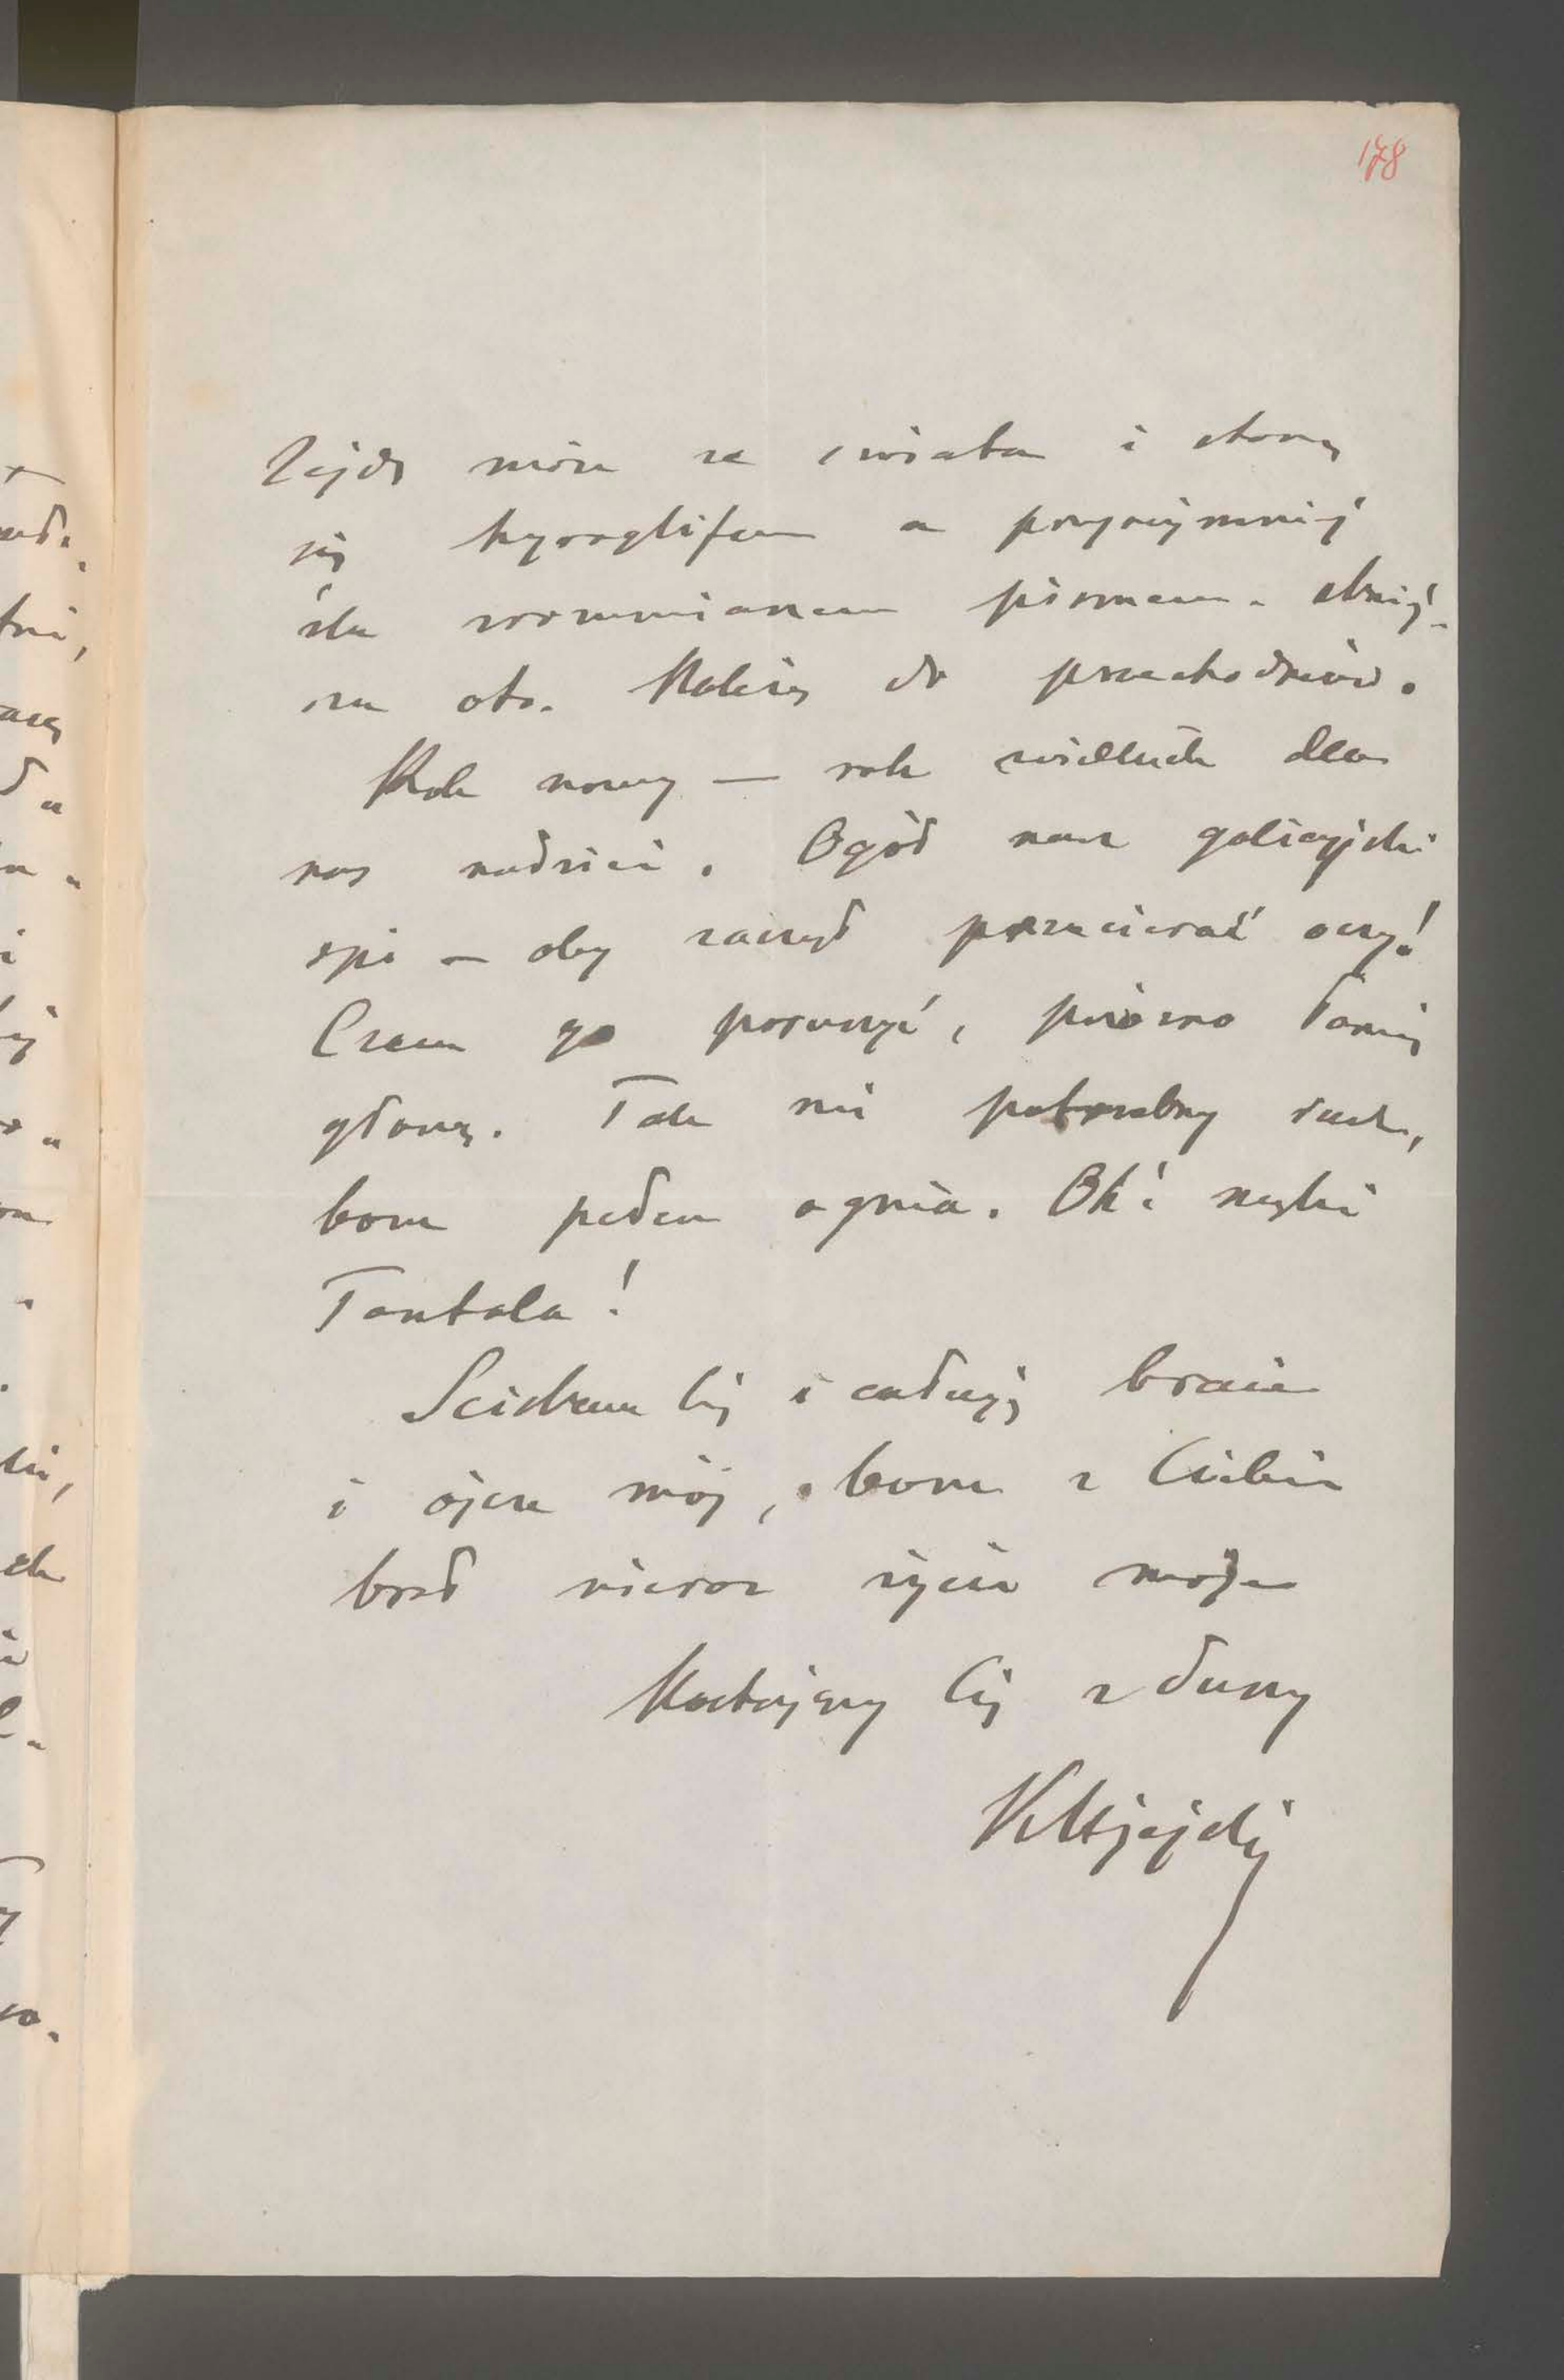 178
Zejdę może ze świata i staną
się hyeroglifem a przynajmniej
źle zrozumianem pismem.
na oto. Należę do przechodniów.
Rok nowy — rok wielkich dla
nas nadziei. Ogół nasz galicyjski
spi — oby zaczął przecierać oczy!
Czem go poruszyć, próżno łamię
głowę. Tak mi potrzebny ruch,
bom pełen ognia. Oh! męki
Tantala!
Sciskam Cię i całuję bracie
i ojcze mój, bom z Ciebie
brał nieraz życie moje
Kochający Cię z duszy